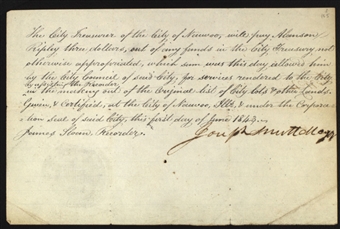 The City Treasurer of the City of Nauvoo, will pay Alanson
Ripley three dollars, out of any funds in the City Treasury not
otherwise appropriated, which sum was this day allowed him
by the City Council of said City, for services rendered to the City
in the making out of the Original list of City Lots & other Lands.
Given, & Certified, at the City of Nauvoo, Ills. & under the Corpora-
tion Seal of said City, this first day of June 1843.
James Sloan, Recorder.
Joseph Smith Mayor